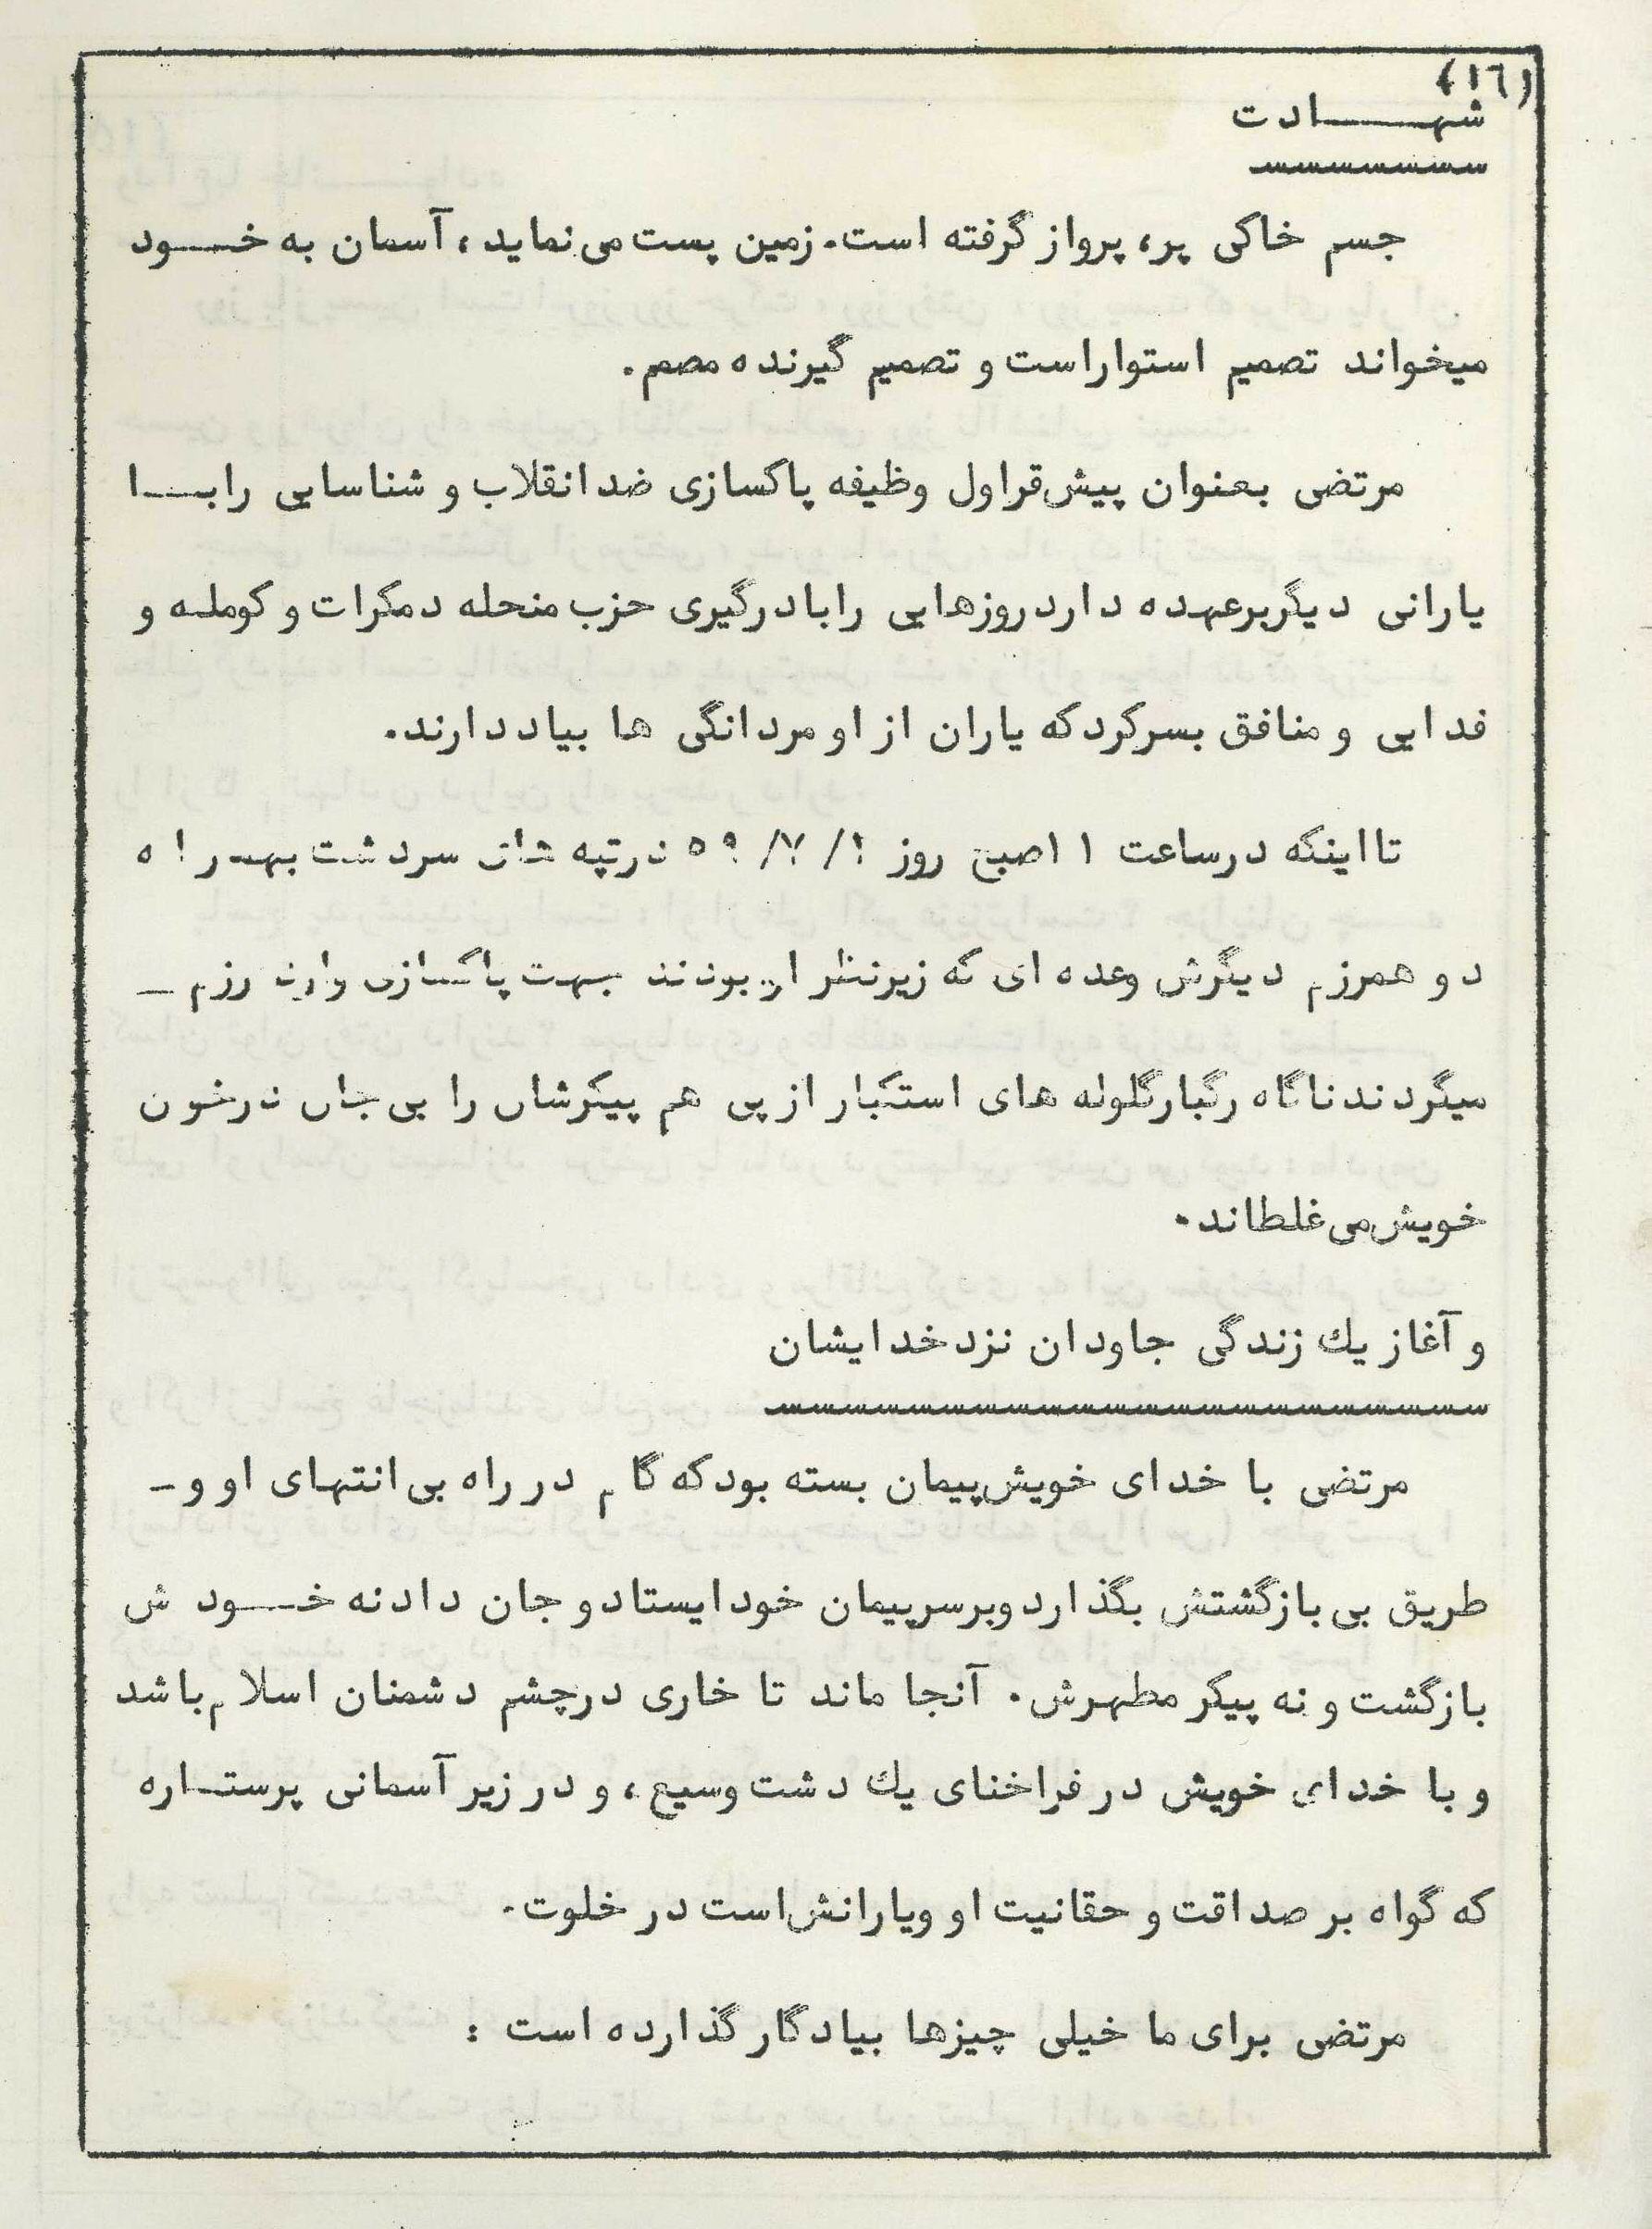 (١٦)
شهـــــادت
جسم خاکی پر، پرواز گرفته است. زمین پست می نماید، آسمان به خـــود
میخواند تصمیم استوار است و تصمیم گیرنده مصمم.
مرتضی بعنوان پیش قراول وظیفه پاکسازی ضد انقلاب و شناسایی را بـــا
یارانی دیگر برعهده دارد روزهایی را با درگیری حزب منحله دمکرات و کوملـه و
فدایی و منافق بسر کرد که یاران از او مردانگی ها بیاد دارند.
تا اینکه در ساعت ۱۱ صبح روز ۱/ ۷/ ۵۹ در تپه های سردشت بهمراه
دو همرزم دیگرش وعده ای که زیرنظر او بودند جهت پاکسازی وارد رزم ـ
میگردند ناگاه رگبار گلوله های استکبار از پی هم پیکرشان را بی جان در خون
خویش می غلطاند.
و آغاز یك زندگی جاودان نزد خدایشان
مرتضی با خدای خویش پیمان بسته بود که گام در راه بی انتهای او و ـ
طریق بی بازگشتش بگذارد و بر سر پیمان خود ایستاد و جان داد نه خـــود ش
بازگشت و نه پیکر مطهرش. آنجا ماند تا خاری در چشم دشمنان اسلام باشد
و با خدای خویش در فراخنای یك دشت وسیع، و در زیر آسمانی پرستـاره
که گواه بر صداقت و حقانیت او و یارانش است در خلوت.
مرتضی برای ما خیلی چیزها بیادگار گذارده است :